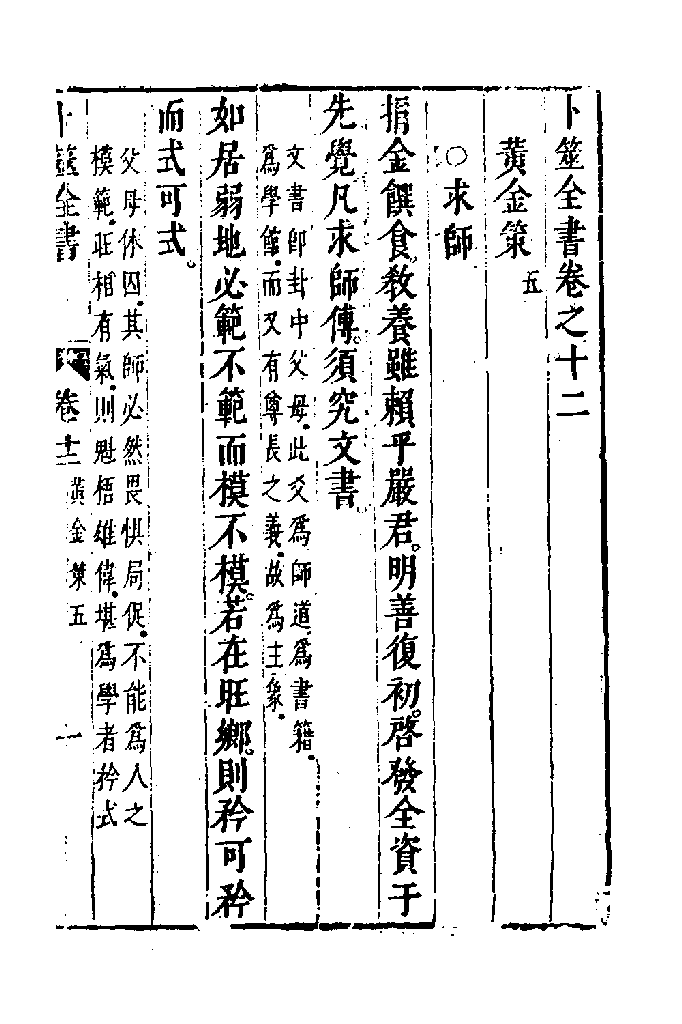 卜筮全書卷之十二
黃金策五
○求師
捐金饌食。教養雖賴乎嚴君。明善復初。啓發全資于
先覺。凡求師傳。須究文書。
文書即卦中父母。此爻爲師道。爲書籍。
爲學館。而又有尊長之義。故爲主象。
如居弱地。必範不範而模不模。若在旺鄉。則矜可矜
而式可式。
父母休囚。其師必然畏惧局促。不能爲人之
模範。旺相有氣。則魁梧雄偉。堪爲學者矜式
卜筮全書 卷十二 黃金策五 一